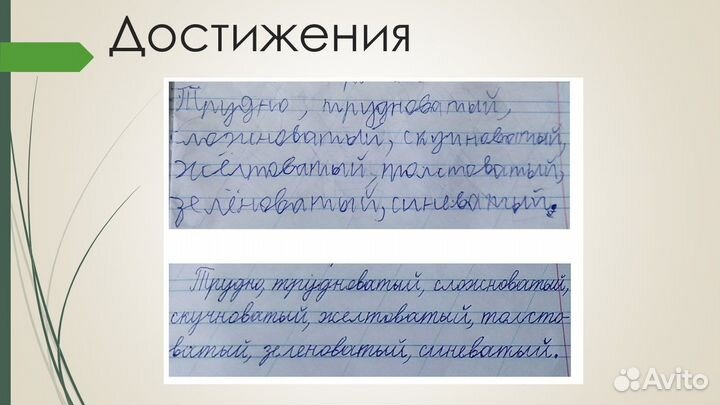 Достижения
Трудно, трудноватый,
сложноватый, скучноватый,
жёлтоватый, толстоватый,
зелёноватый, синеватый.
Трудно, трудноватый, сложноватый,
скучноватый, желтоватый, толсто-
ватый, зеленоватый, синеватый.
Avito